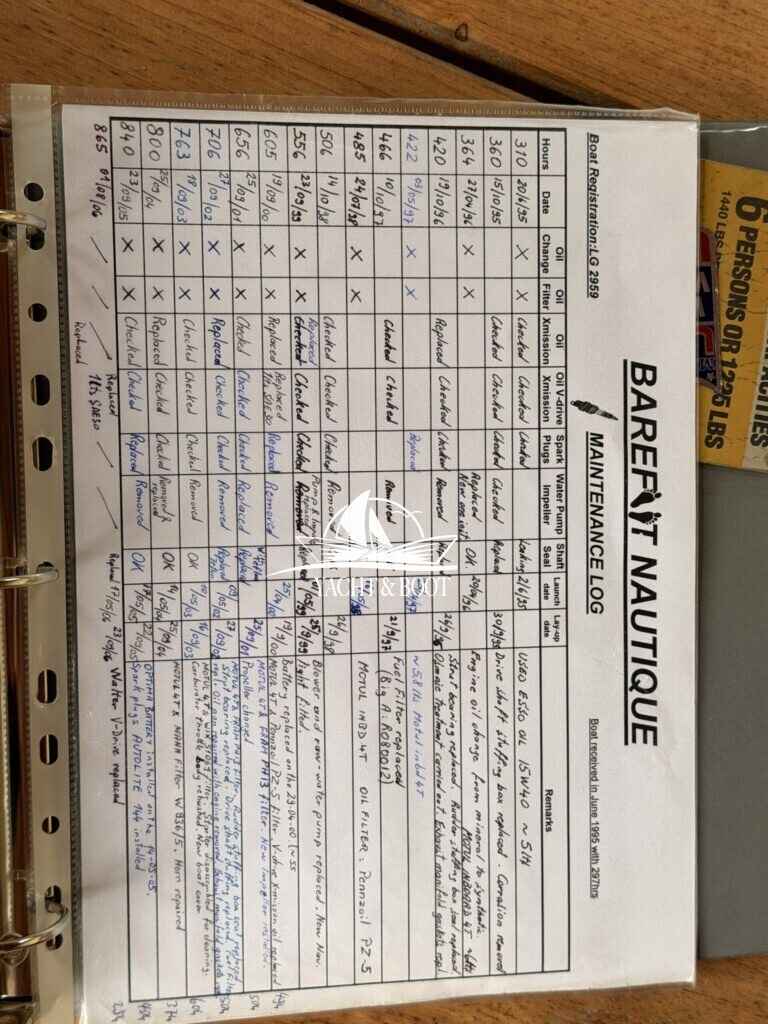 BAREFOOT NAUTIQUE
MAINTENANCE LOG
Boat Registration: LG 2959
Boat received in June 1995 with 297hrs
Hours Date Oil Change Oil Filter Oil Xmission Oil V-drive Xmission Spark Plugs Water Pump Impeller Shaft Seal Launch date Lay-up date Remarks
310 20/6/95 X X Checked Checked Checked Leaking 2/6/95 USED ESSO OIL 15W40 ~ 5 lts
360 15/10/95 Checked Checked Checked Checked Replaced 30/9/95 Drive shaft stuffing box replaced. Corrosion removed
364 27/04/96 X X Replaced New one inst. OK 20/04/96 Engine oil change from mineral to synthetic MOTUL INBOARD 4T
420 19/10/96 Replaced Checked Checked Removed 26/9/96 Strut bearing replaced. Rudder stuffing box seal replaced. Exhaust manifold gaskets repl.
422 03/05/97 X X Replaced ~ 5 lts Motul inbd 4T
466 10/10/97 Checked Checked Removed 21/9/97 Fuel Filter replaced (Big A: R080012)
485 24/07/98 X X MOTUL INBD 4T OIL FILTER: Pennzoil PZ-5
506 14/10/98 Checked Checked Checked 26/9/98 Blower and raw-water pump replaced. New Nav. light fitted.
556 23/09/99 X X Replaced Checked Checked Checked Removed Replaced 01/05/99 25/9/99
605 19/09/00 X X Replaced Replaced 1 ltr SAE 30 Replaced Removed 19/9/00 Battery replaced on the 29-04-00 MOTUL 4T, Pennzoil PZ-5 filter, V-drive Xmission oil replaced 494
656 25/09/01 X X Checked Checked Checked Replaced Replaced 25/09/01 MOTUL 4T & FRAM PH13 filter. New impeller installed. Propeller changed 504
706 27/09/02 X X Replaced Checked Checked Removed Replaced 27/09/02 MOTUL 4T & FRAM PH13 Filter. Rudder stuffing box seal replaced Strut bearing replaced. Drive shaft stuffing replaced. 504
763 18/09/03 X X Checked Checked Checked Removed OK 16/09/03 MOTUL 4T & WIX Filter. Starter disassembled for cleaning. Carburator throttle body rebushed. New boat cover 604
800 25/09/04 X X Replaced Checked Checked Removed & replaced OK 14/05/04 25/09/04 MOTUL 4T & MANN Filter W 936/5. Horn repaired 374
840 23/09/05 X X Checked Checked Replaced Removed OK 17/05/05 22/09/05 OPTIMA BATTERY installed on the 14-05-05. Spark plugs AUTOLITE 144 installed 454
865 01/08/06 Replaced Replaced 1 ltr SAE30 Replaced 17/05/06 23/09/06 Walter V-Drive replaced 254
6 PERSONS OR 1225 LBS
1440 LBS
YACHT & BOOT